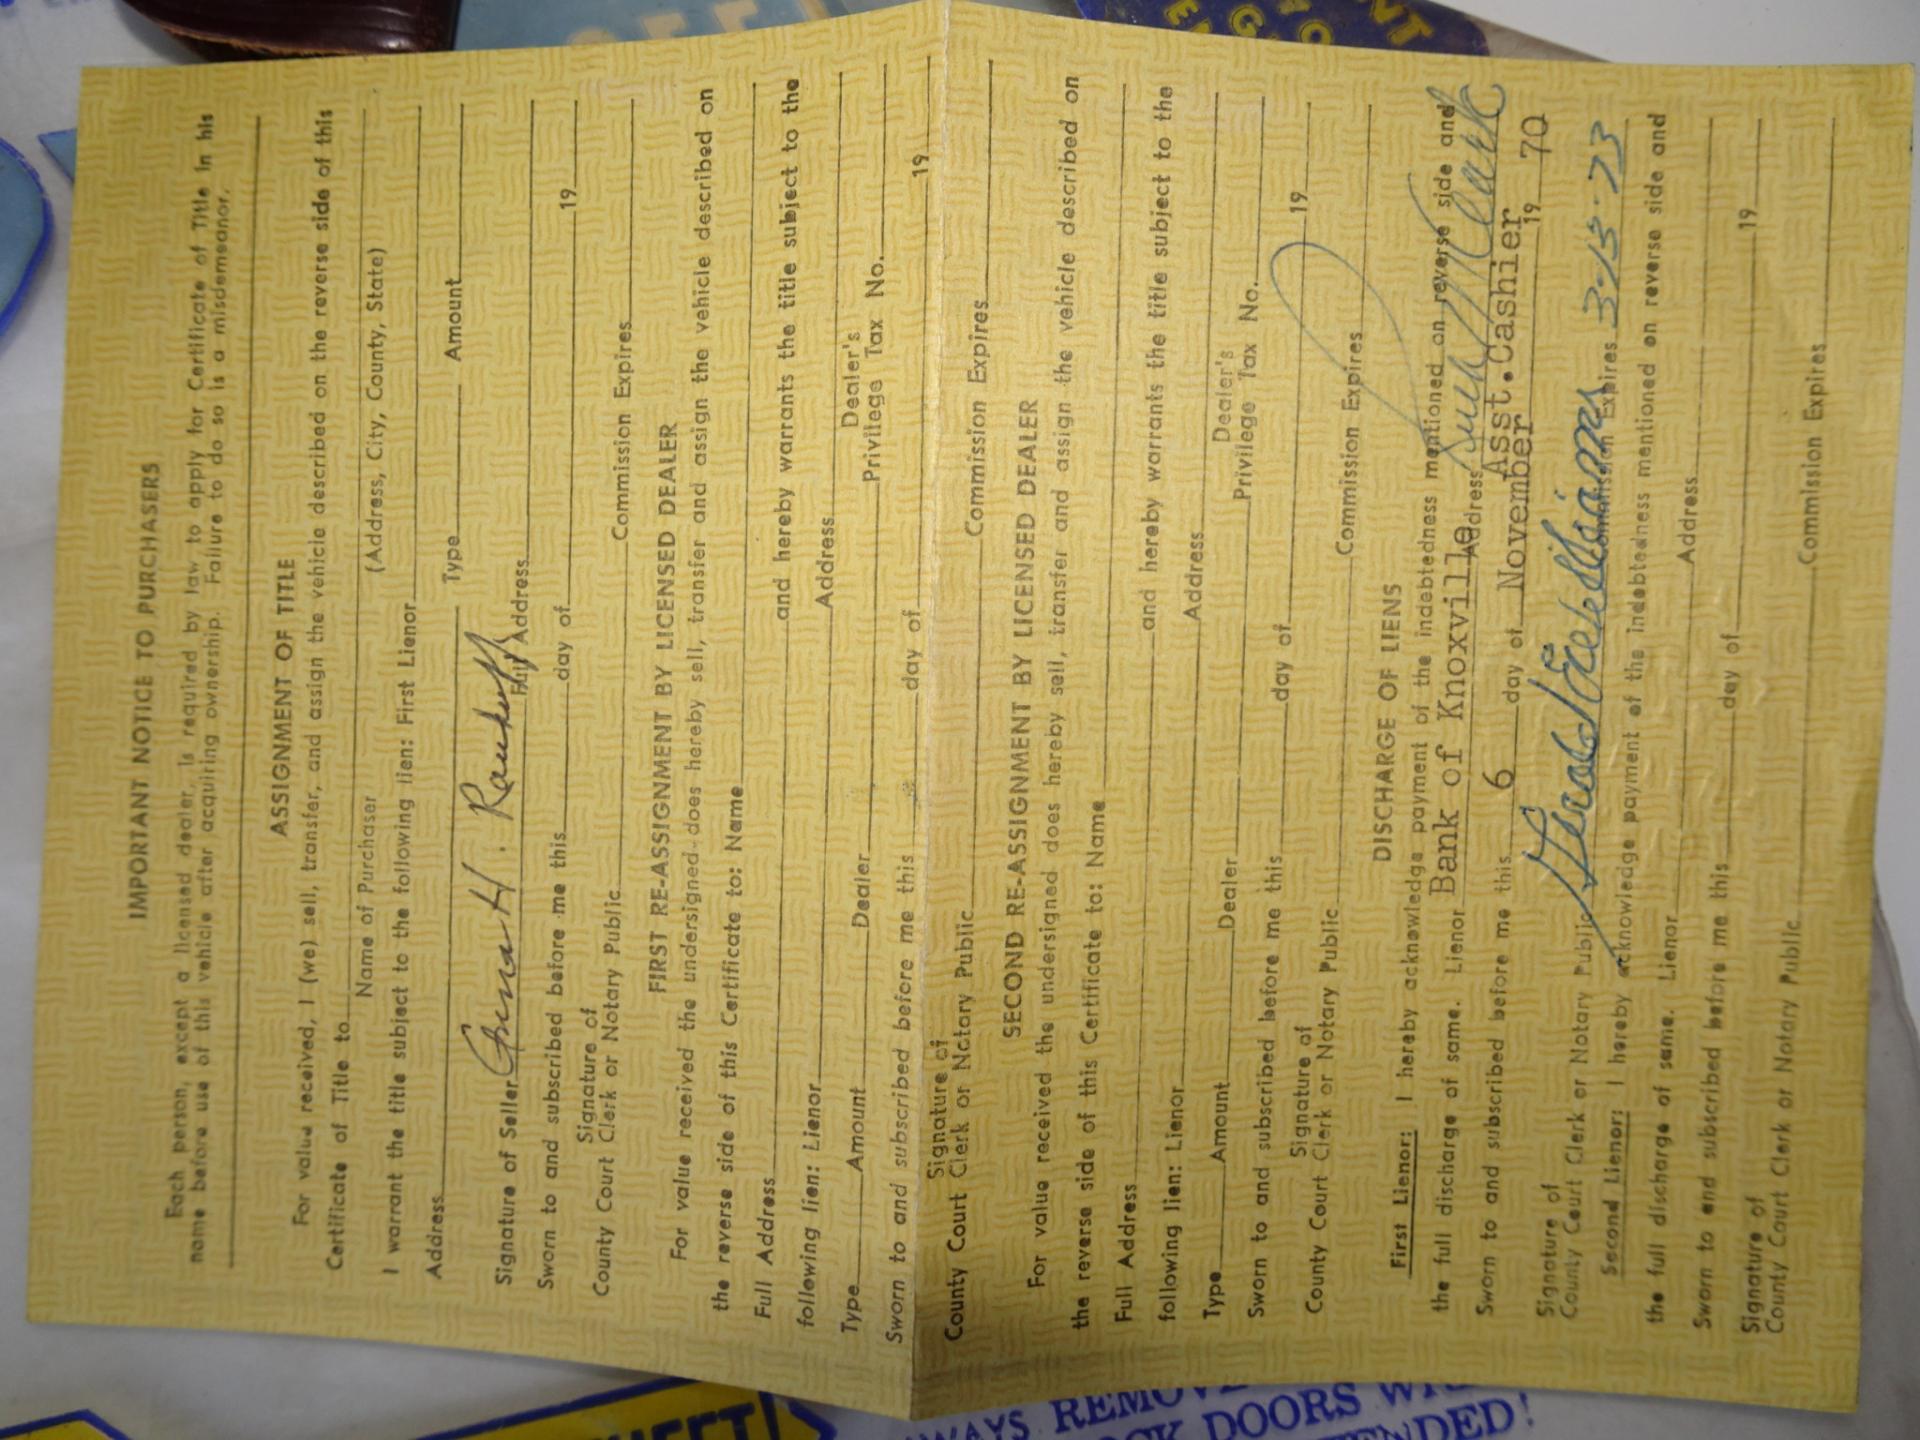 IMPORTANT NOTICE TO PURCHASERS
Each person, except a licensed dealer, is required by law to apply for Certificate of Title in his
name before use of this vehicle after acquiring ownership. Failure to do so is a misdemeanor.
ASSIGNMENT OF TITLE
For value received, I (we) sell, transfer, and assign the vehicle described on the reverse side of this
Certificate of Title to
Name of Purchaser (Address, City, County, State)
I warrant the title subject to the following lien: First Lienor
Address Type Amount
Signature of Seller H. Full Address
Sworn to and subscribed before me this day of 19
Signature of
County Court Clerk or Notary Public Commission Expires
FIRST RE-ASSIGNMENT BY LICENSED DEALER
For value received the undersigned does hereby sell, transfer and assign the vehicle described on
the reverse side of this Certificate to: Name
Full Address and hereby warrants the title subject to the
following lien: Lienor Address
Type Amount Dealer Dealer's Privilege Tax No.
Sworn to and subscribed before me this day of 19
Signature of
County Court Clerk or Notary Public Commission Expires
SECOND RE-ASSIGNMENT BY LICENSED DEALER
For value received the undersigned does hereby sell, transfer and assign the vehicle described on
the reverse side of this Certificate to: Name
Full Address and hereby warrants the title subject to the
following lien: Lienor Address
Type Amount Dealer Dealer's Privilege Tax No.
Sworn to and subscribed before me this day of 19
Signature of
County Court Clerk or Notary Public Commission Expires
DISCHARGE OF LIENS
First Lienor: I hereby acknowledge payment of the indebtedness mentioned on reverse side and
the full discharge of same. Lienor Bank of Knoxville Address
Asst.Cashier
Sworn to and subscribed before me this 6 day of November 19 70
Signature of
County Court Clerk or Notary Public Commission Expires 3-13-73
Second Lienor: I hereby acknowledge payment of the indebtedness mentioned on reverse side and
the full discharge of same. Lienor Address
Sworn to and subscribed before me this day of 19
Signature of
County Court Clerk or Notary Public Commission Expires